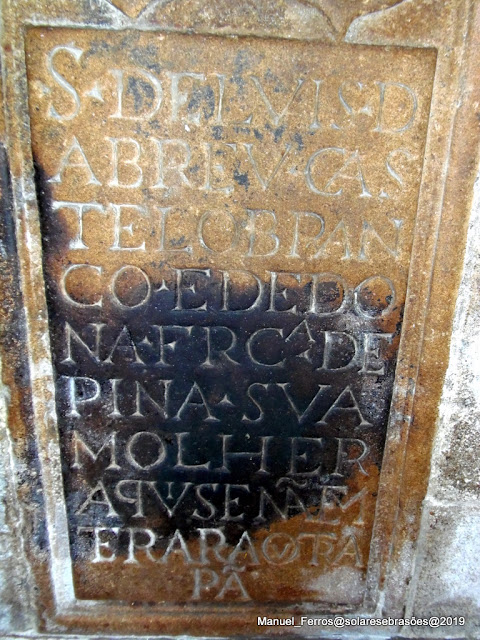 S·DELVIS·D
ABREV·CAS
TELOBRAN
CO·EDEDO
NA·FRCA DE
PINA·SVA
MOLHER
TERARA
PÃ
Manuel_Ferros@solaresebrasões@2019